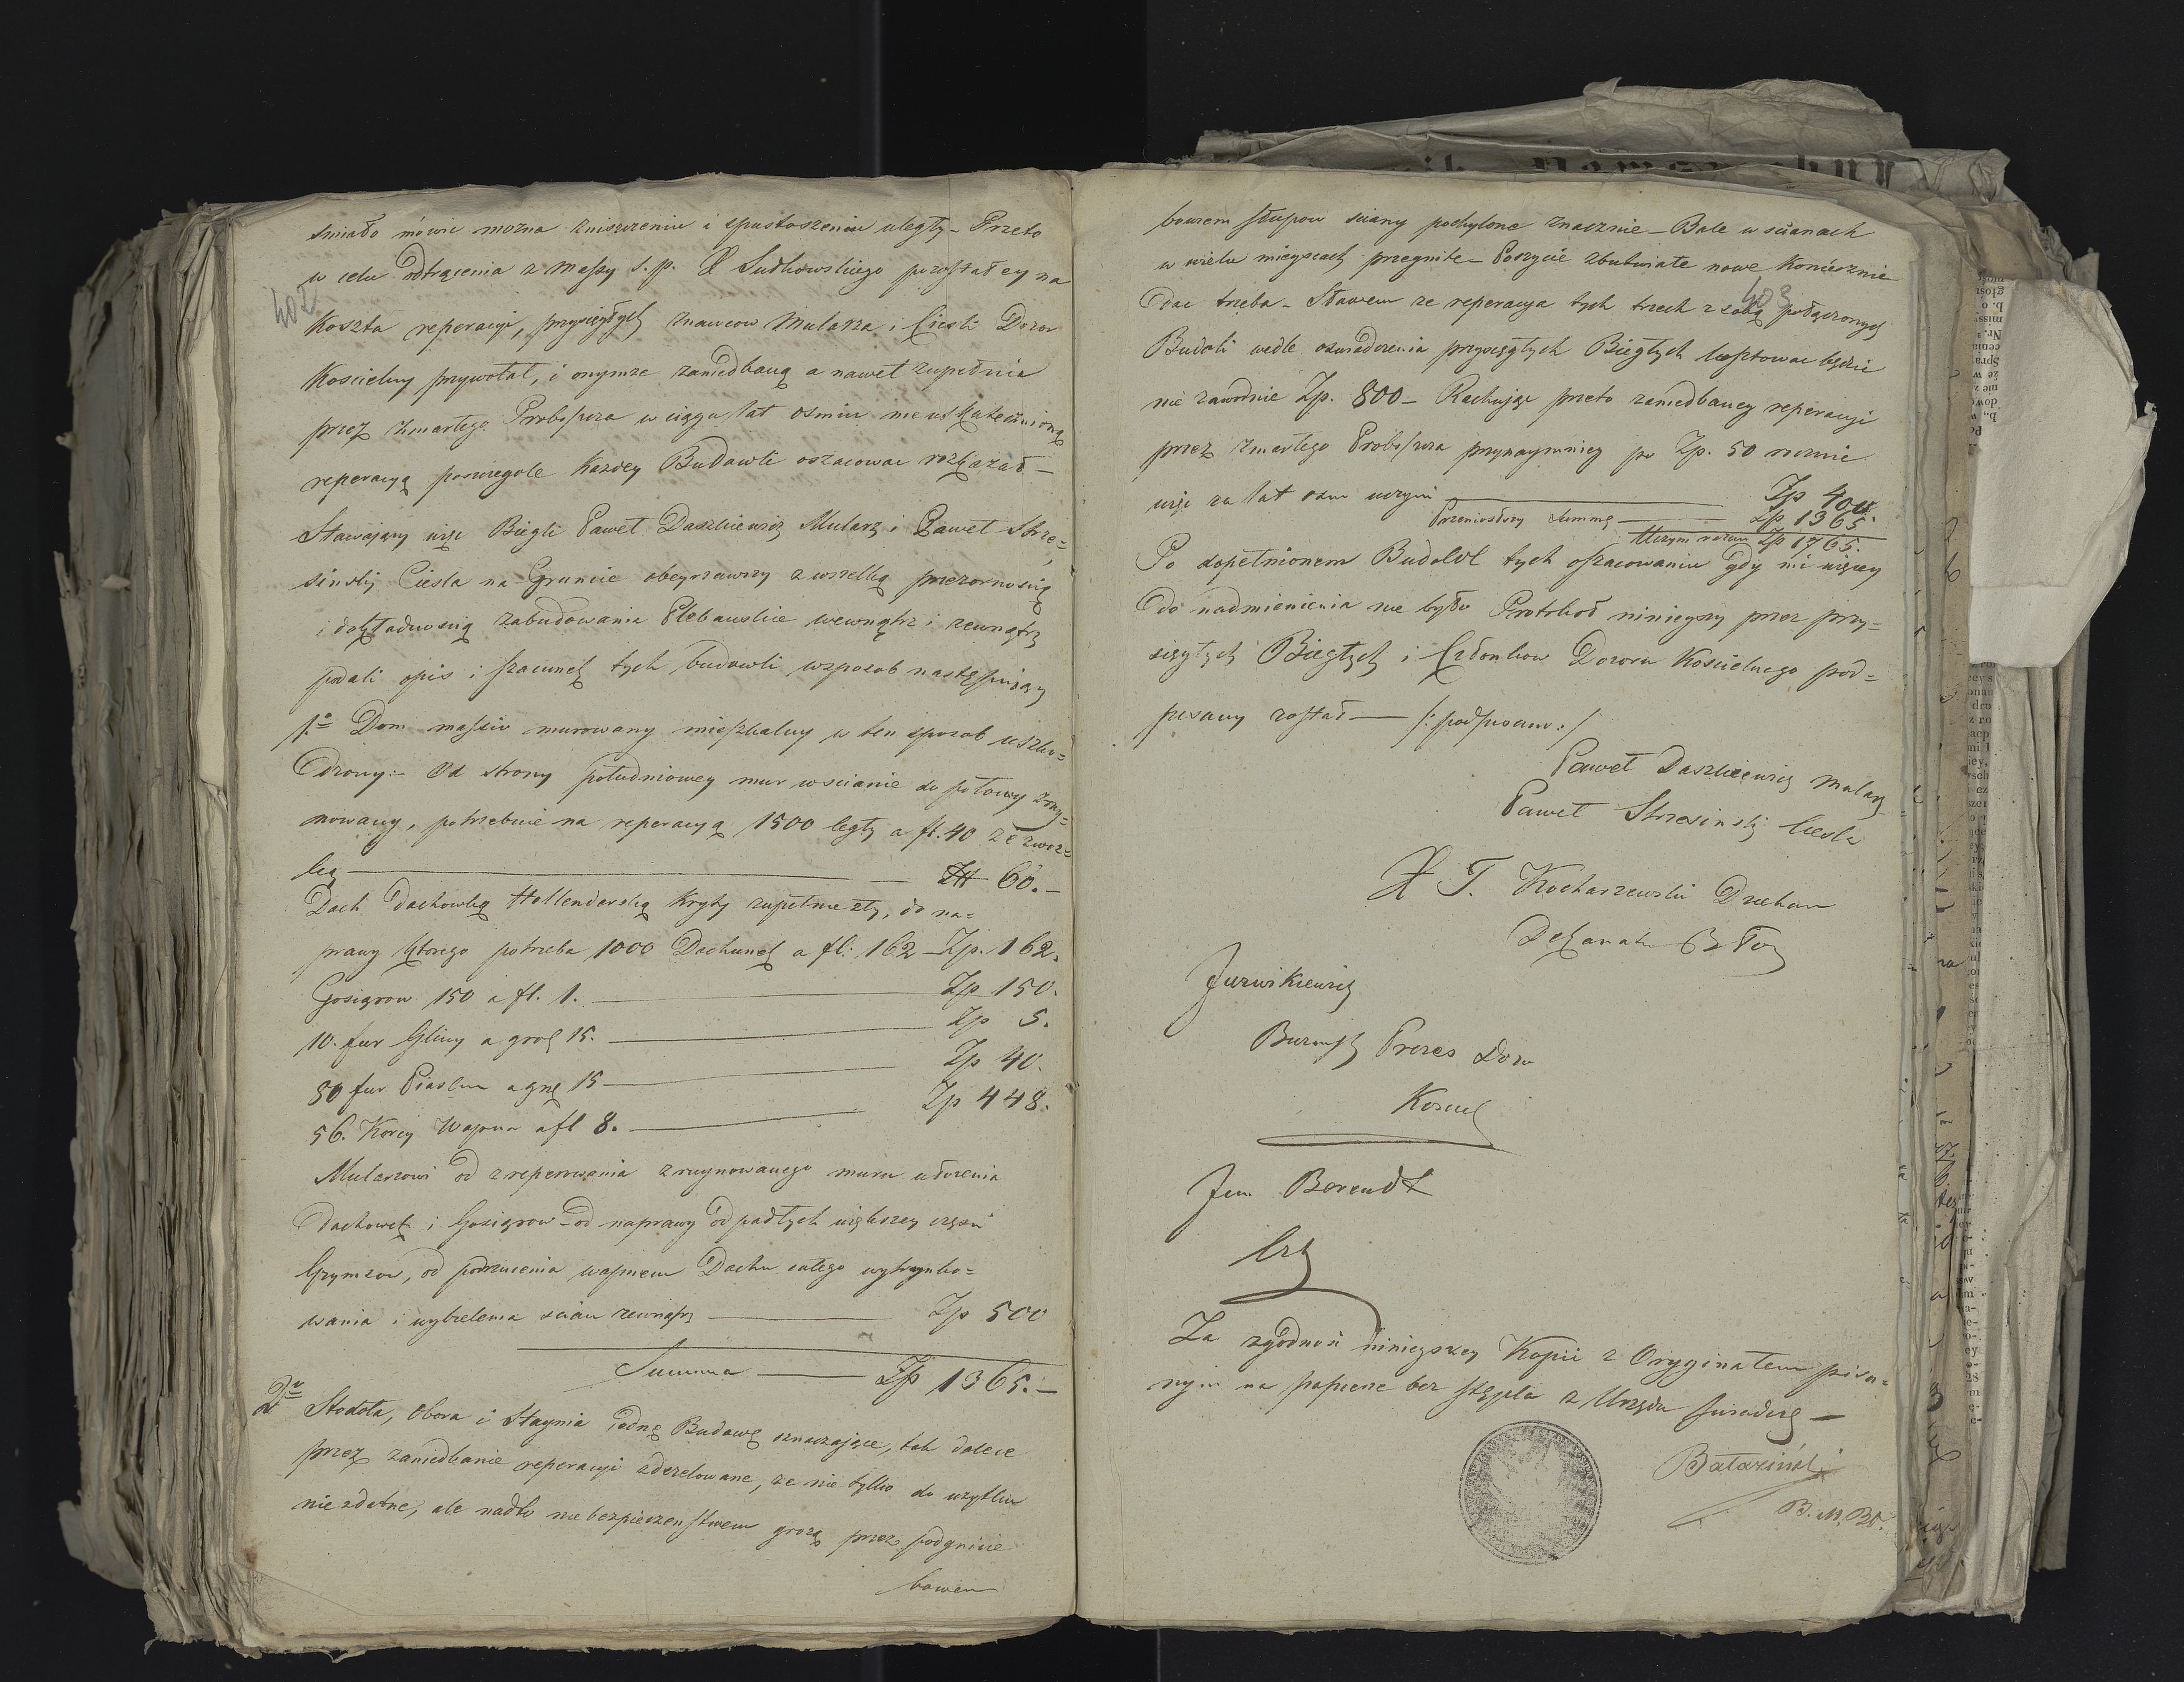 402
smiało mówic mozna zniszczeniu i spustoszeniu uległy – Przeto
w celu odtrącenia z massy s. p. X Sutkowskiego pozostałey na
Koszta reperacyi, przysięgłych znawcow Mularza i Ciesli Dozor
Koscielny przywołał, i onymze zaniedbaną a nawet zupełnie
przez zmarłego Proboszcza w ciągu lat osmiu nieuskutecznioną
reperacyą poszczegole kazdey Budowli oszacowac rozkazał –
Stawający więc Biegli Paweł Daszkiewicz Mularz i Paweł Strze=
sinski Ciesla na Gruncie obeyrzawszy z wszelką przezornoscią
i dokładnoscią zabudowania Plebanskie wewnątrz i zewnątrz
podali opis i szacunek tych budowli wsposob następuiący
1o Dom massiv murowany mieszkalny w ten sposob uszko=
dzony:– Od strony południowey mur wscianie do połowy zruy=
nowany, potrzebuie na reperacyą 1500 cegły a fl. 40 ze zwoz=
ką — Zł 60.–
Dach dachowką Hollenderską kryty zupełnie zły, do na=
prawy ktorego potrzeba 1000 Dachowek a fl: 162 – Zp. 162.
Gosiąrow 150 a fl. 1. — Zp 150.
10. fur Gliny a groł 15. — Zp 5.
80 fur Piasku a gr 15 — Zp 40.
56. Korcy Wapna a fl 8. — Zp 448.
Mularzowi od zreperowania zruynowanego muru ułozenia
Dachowek i Gosigrow – od naprawy odpadłych większey częsci
Gzymsow, od podrzucenia wapnem Dachu całego wytynko=
wania i wybielenia scian zewnątrz — Zp 500
Summa — Zp 1365.–
2o Stodoła, Obora i Staynia iedną Budowę oznaczające, tak dalece
przez zaniedbanie reperacyi zdezelowane, ze nie tylko do uzytku
niezdatne, ale nadto niebezpieczenstwem grozą przez podgnicie
bowem
403
bowem słupow sciany pochylone znacznie – Bale w scianach
w wielu mieyscach przegniłe – Poszycie zbutwiałe nowe koniecznie
dac trzeba – Słowem ze reperacya tych trzech z sobą połączonych
Budoli wedle oswiadczenia przysięgłych Biegłych kosztowac będzie
nie zawodnie Zp. 800 – Rachując przeto zaniedbaney reperacyi
przez zmarłego Proboszcza przynaymniey po Zp. 50 rocznie
więc za lat osm uczyni — Zp 400.
Przeniosłszy summę — Zp 1365
Uczyni razem Zp 1765.
Po dopełnionem Budowl tych oszacowaniu gdy nic więcey
do nadmienienia nie było Protokoł ninieyszy przez przy=
sięgłych Biegłych i Członkow Dozoru Koscielnego pod=
pisany został — /: podpisano :/
Paweł Daszkiewicz Mularz
Paweł Strzesinski Ciesla
X T. Kocharzewski Dziekan
Dekanatu
Jurwikiewicz
Burmistrz Prezes Dozo
Kosciel
Jan Berendt
Czł
Za zgodnosc ninieyszey Kopii z Oryginałem pisa=
nym na papierze bez stępla z Urzędu swiadczę —
Bałaziński
B. M. Bł.